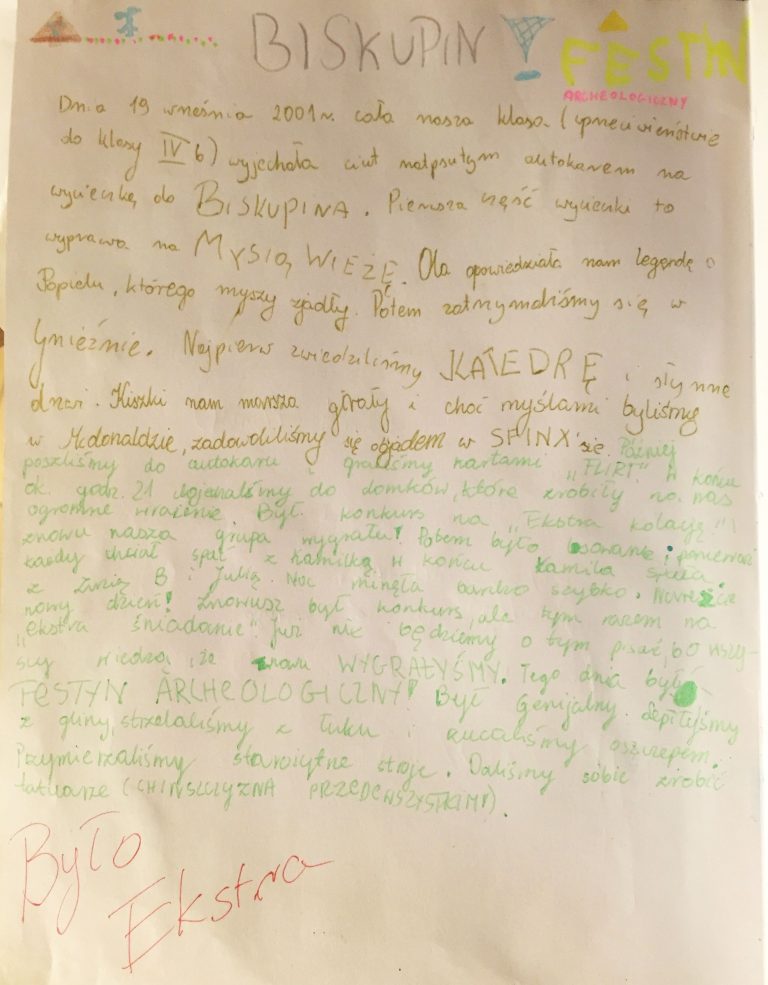 BISKUPIN FESTYN
ARCHEOLOGICZNY
Dnia 19 września 2001r. cała nasza klasa (w przeciwieństwie
do klasy IV b) wyjechała ciut nadpsutym autokarem na
wycieczkę do BISKUPINA. Pierwsza część wycieczki to
wyprawa na MYSIĄ WIEŻĘ. Ola opowiedziała nam legendę o
Popielu, którego myszy zjadły. Potem zatrzymaliśmy się w
Gnieźnie. Najpierw zwiedziliśmy KATEDRĘ i słynne
drzwi. Kiszki nam marsza grały i choć myślami byliśmy
w Mcdonaldzie, zadowoliliśmy się objadem w SFINX'sie. Później
poszliśmy do autokaru i graliśmy kartami "FLIRT". W końcu
ok. godz. 21 dojechaliśmy do domków, które zrobiły na nas
ogromne wrażenie. Był konkurs na "Ekstra kolację"!
znowu nasza grupa wygrała! Potem było losowanie i ponieważ
każdy chciał spać z Kamilką w końcu Kamila spała
z Zuzią B i Julią. Noc minęła bardzo szybko. Nareszcie
nowy dzień! Znowusz był konkurs, ale tym razem na
"ekstra śniadanie". Już nie będziemy o tym pisać, bo wszy-
scy wiedzą, że znowu WYGRAŁYŚMY. Tego dnia był
FESTYN ARCHEOLOGICZNY! Był Genijalny. Lepiłyśmy
z gliny, strzelaliśmy z łuku i rzucaliśmy oszczepem.
Przymierzaliśmy starożytne stroje. Daliśmy sobie zrobić
tatuarze (CHIŃSZCZYZNA PRZEDEWSZYSTKIM!).
Było
Ekstra